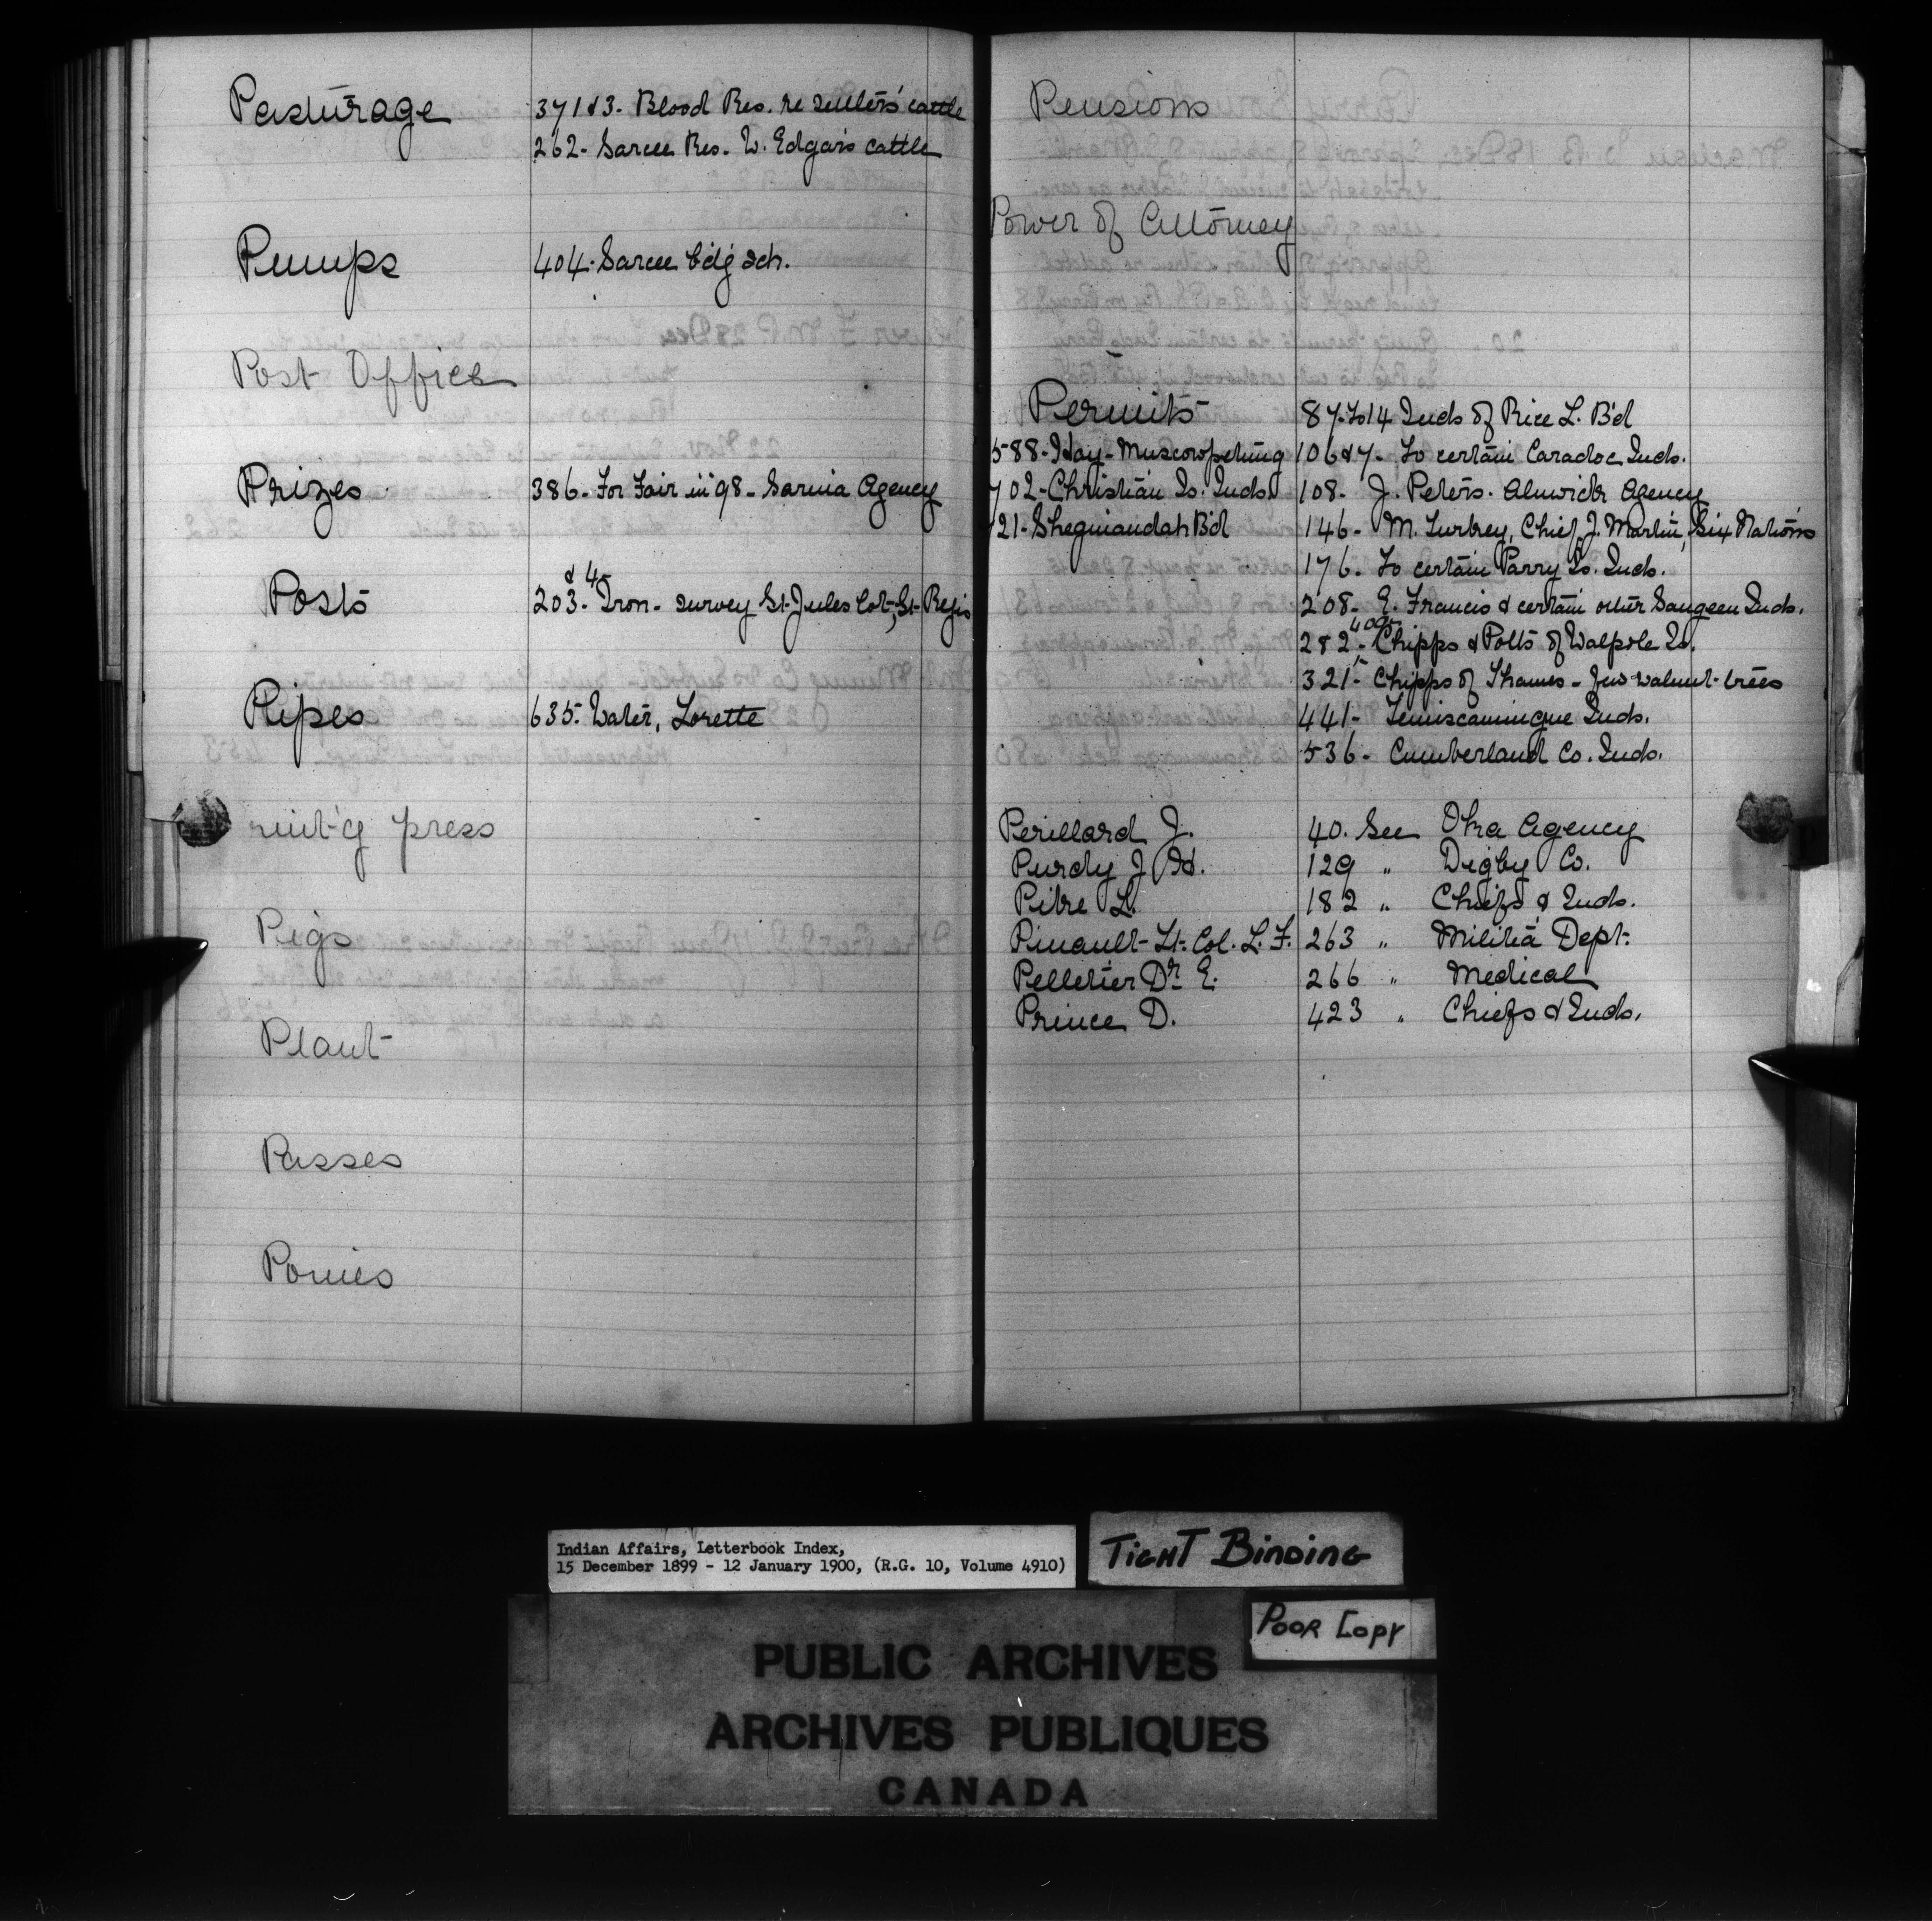 Pasturage 371&3. Blood Res. re settlers' cattle
262. Sarcee Res. W. Edgar's cattle
Pumps 404. Sarcee b'd'g sch.
Post Office
Prizes 386. For Fair in '98 - Sarnia Agency
& 4
Posts 203. Iron - survey St. Jules Cot., St. Regis
Pipes 635. Water, Lorette
rint'g press
Pigs
Plant
Passes
Ponies
Pensions
Power of Attorney
Permits 87 to 14 Inds of Rice L. B'd
588. Hay - Muscowpetung 106&7. To certain Caradoc Inds.
702. Christian Is. Inds. 108. J. Peters. Alnwick Agency
21. Sheguiandah B'd 146. M. Turkey, Chief J. Martin, Six Nations
176. To certain Parry Is. Inds.
208. E. Francis & certain other Saugeen Inds.
282. Chipps & Potts of Walpole Is.
321. Chipps of Thames - few walnut trees
441. Temiscamingue Inds.
536. Cumberland Co. Inds.
Perillard J. 40. See Oka Agency
Purdy J. H. 129 " Digby Co.
Pitre L. 182 " Chiefs & Inds.
Pinault Lt. Col. L. F. 263 " Militia Dept.
Pelletier Dr E. 266 " Medical
Prince D. 423 " Chiefs & Inds.
Indian Affairs, Letterbook Index,
15 December 1899 - 12 January 1900, (R.G. 10, Volume 4910)
TIGHT BINDING
POOR COPY
PUBLIC ARCHIVES
ARCHIVES PUBLIQUES
CANADA